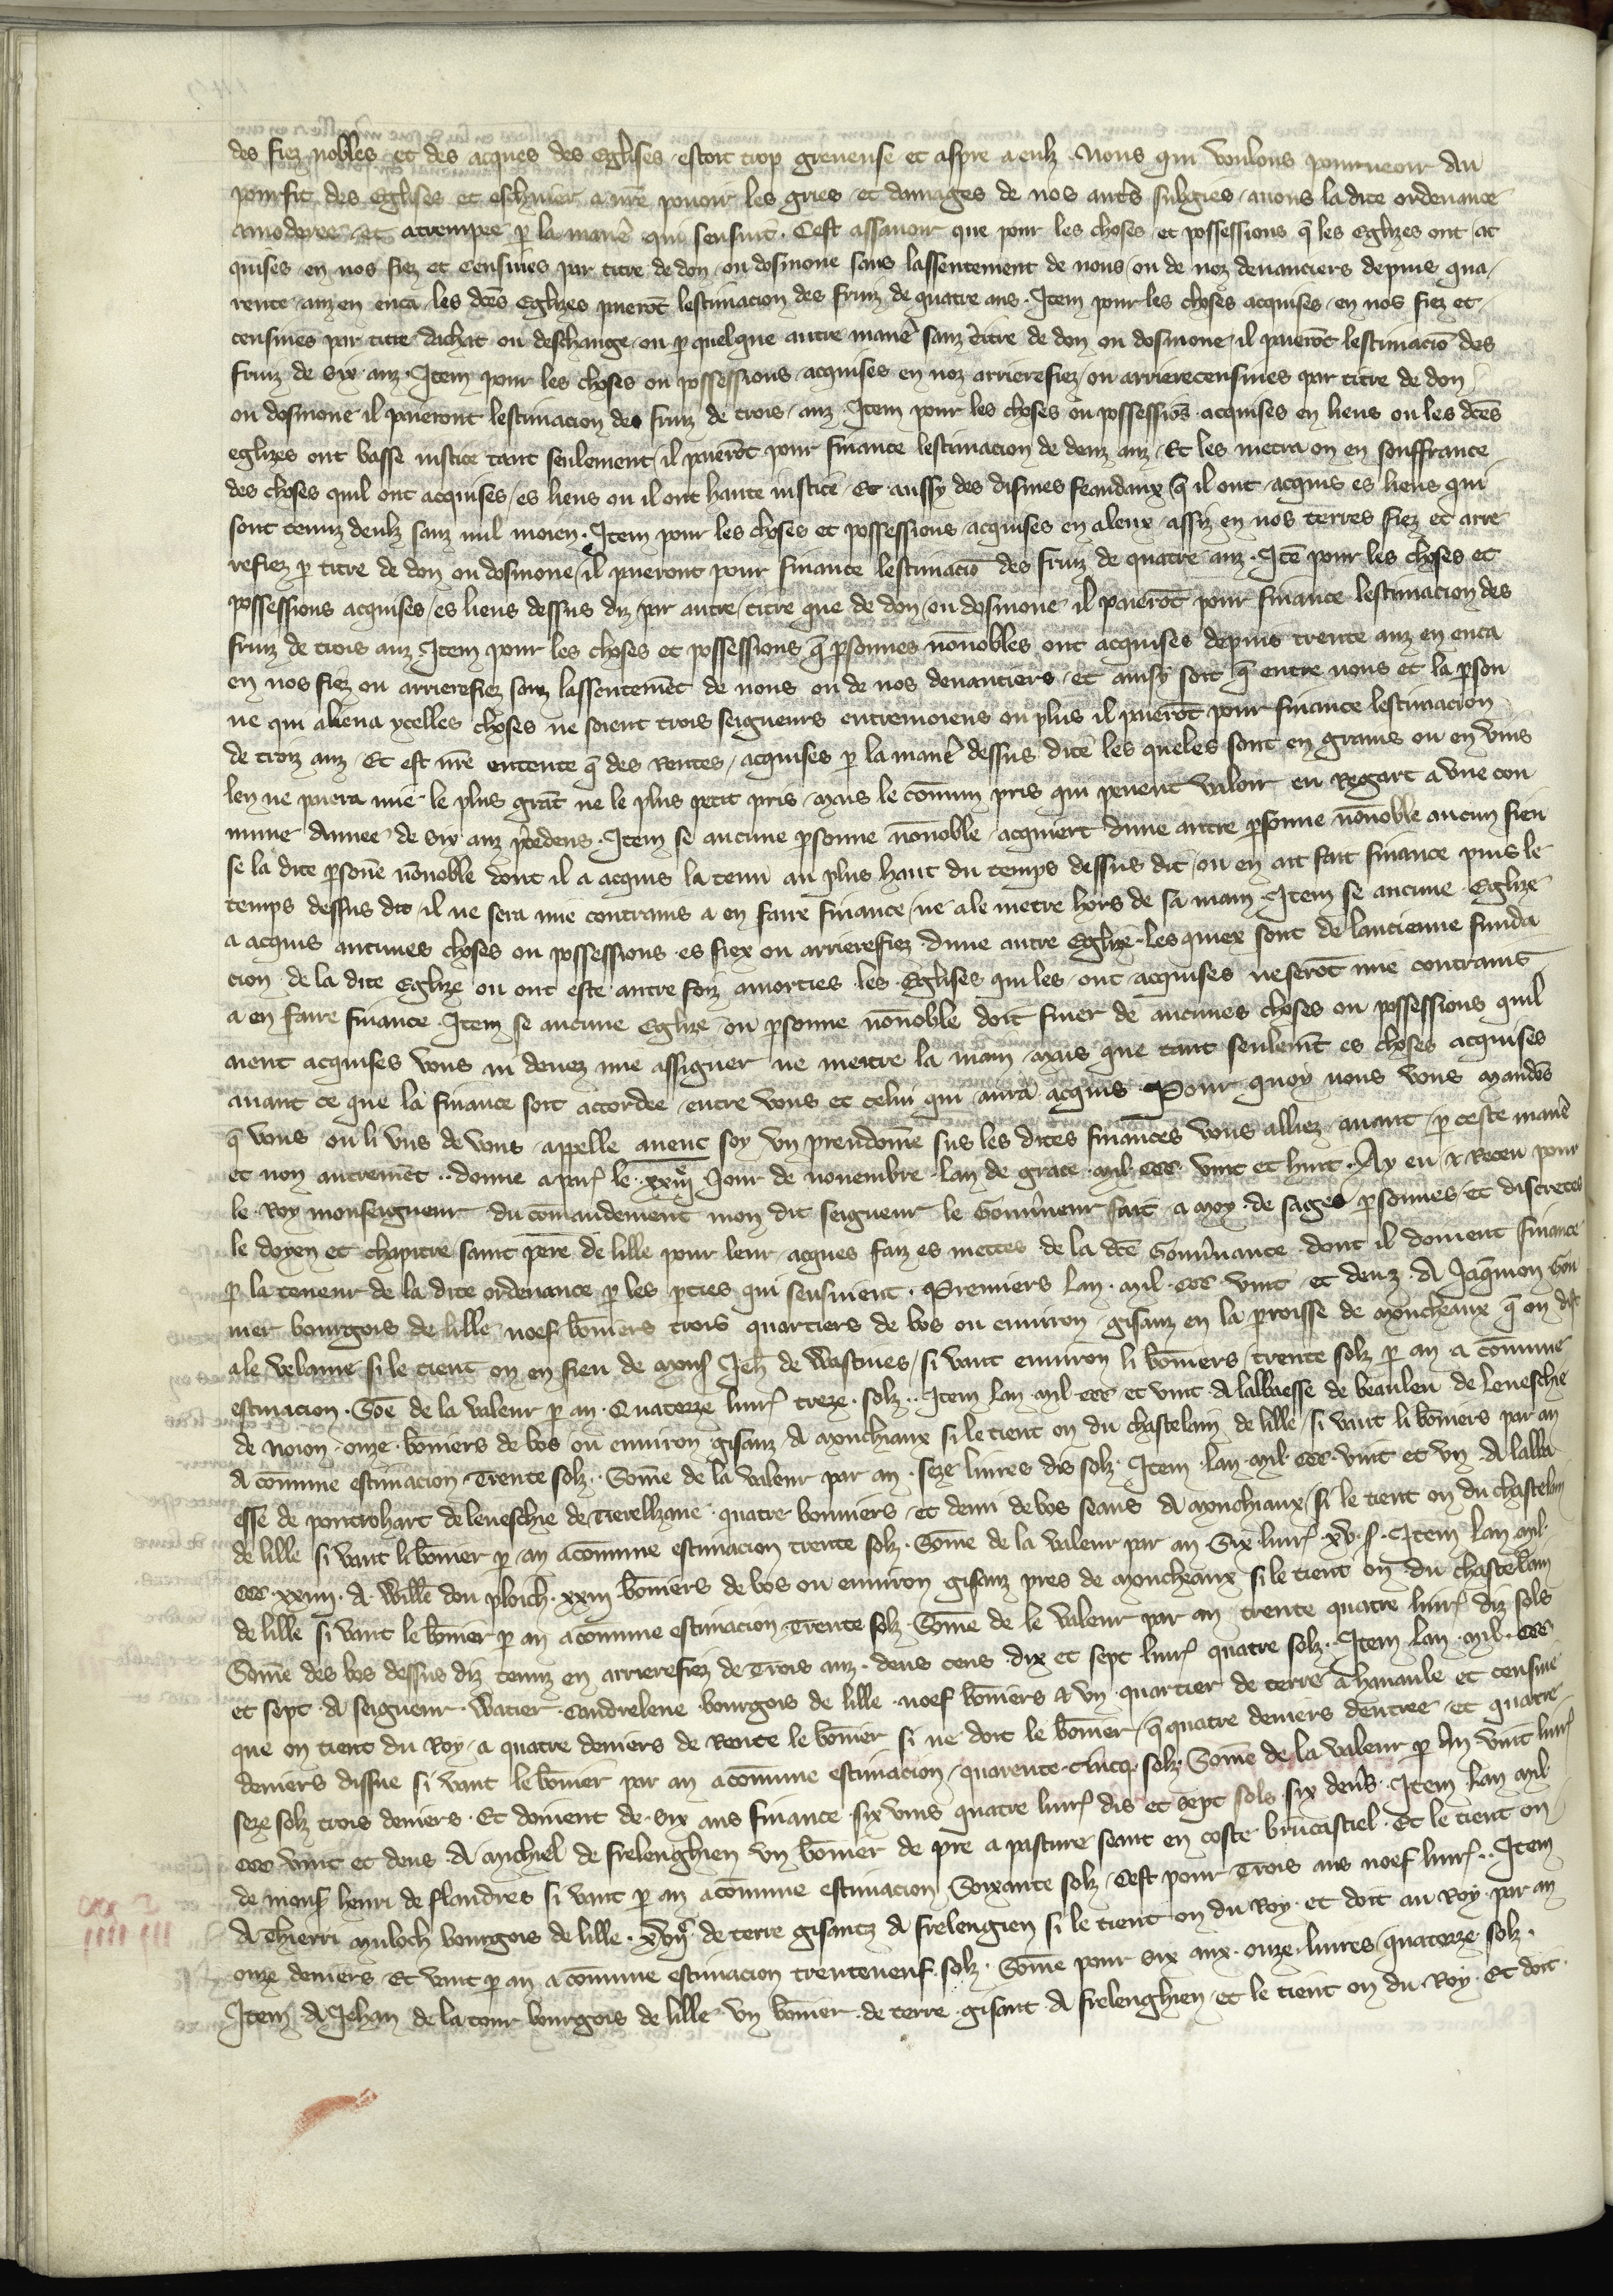 des fiez nobles et des acques des Eglises estoit trop greueuse et aspre a eulz . Nous qui voulons pourueoir au
pourfit des Eglises et eschuier a nr̄e pouoir les gries et damages de nos autr̄s subgies / auons la dite ordenance
amoderee et atrempee ꝑ la maner̄ qui sensuit . Cest assauoir que pour les choses et possessions q̄ les Eglizes ont ac
quises en nos fiez et censiues par titre de don ou dosmone sans lassentement de nous ou de noz deuanciers depuis qua/
rente anz en enca les dc̄es Eglizes paierōt lestimacion des fruiz de quatre ans . Item pour les choses acquises en nos fiez et
censiues par titre dachat ou deschange ou ꝑ quelque autre maner̄ sanz titre de don ou dosmone / il paierōt lestimaciō des
fruiz de six anz . Item pour les choses ou possessions acquises en noz arrierefiez ou arrierecensiues par titre de don
ou dosmone il paieront lestimacion des fruiz de trois anz . Item pour les choses ou possessiōs acquises en lieus ou les dc̄es
eglizes ont basse iustice tant seulement / il paierōt pour finance lestimacion de deuz anz / Et les metra on en souffrance
des choses quil ont acquises / es lieus ou il ont haute iustice Et aussy des dismes feaudaux q̄ il ont acquis es lieus qui
sont tenuz deulz sanz nul moien . Item pour les choses et possessions acquises en aleux assiz en nos terres fiez et arre
refiez ꝑ titre de don ou dosmone / il paieront pour finance lestimaciō des fruiz de quatre anz . Itē pour les choses et
possessions acquises / es lieus dessus diz par autre titre que de don ou dosmone il paierōt pour finance lestimacion des
fruiz de trois anz Item pour les choses et possessions q̄ ꝑsonnes nōnobles ont acquises depuis trente anz en enca
en nos fiez ou arrierefiez sanz lassentemēt de nous ou de nos deuanciers et ainsy soit q̄ entre nous et la ꝑson
ne qui aliena ycelles choses ne soient trois seigneurs entremoiens ou plus il paierōt pour finance lestimacion
de troiz anz / Et est nr̄e entente q̄ des Rentes / acquises ꝑ la maner̄ dessus dite les queles sont en grains ou en vins
len ne paiera mie le plus grāt ne le plus petit pris / mais le cōmun pris qui peuent valoir en Regart a vne con
mune annee de six anz ꝓcedens . Item se aucune ꝑsonne nōnoble acquiert dune autre ꝑsonne nōnoble aucun fieu
se la dite ꝑsonē nōnoble dont il a acquis la tenu au plus haut du temps dessus dit / ou en ait fait finance puis le
temps dessus dit / il ne sera mie contrains a en faire finance ne ale metre hors de sa main Item se aucune Eglize
a acquis aucunes choses ou possessions es fiex ou arrierefiez dune autre Eglize les quiex sont de lancienne funda
cion de la dite Eglize ou ont este autre foiz amorties les Eglises qui les ont acquises ne serōt mie contrains
a en faire finance . Item se aucune Eglize ou ꝑsonne nōnoble doit finer de aucunes choses ou possessions quil
aient acquises vous ni deuez mie assigner ne mettre la main mais que tant seulemēt es choses acquises
auant ce que la finance soit accordee entre vous et celui qui aura acquis . Pour quoy nous vous mandōs
q̄ vous ou li vns de vous appelle auenc soy vn preudome sus les dites finances vous alliez auant ꝑ ceste maner̄
et non autremēt .. donne a par̄ le xxiiij̄e Jour de nouembre lan de grace mil ccc vint et huit . Ay eu & Receu pour
le Roy monseigneur du comandement mon dit seigneur le Gouūneur fait a moy de sages ꝑsonnes et discretes
le doyen et chapitre saint pere de lille pour leur acques faiz es mettes de la dc̄e Gouūnance dont il doiuent finance
ꝑ la teneur de la dite ordenance ꝑ les ꝑties qui sensuient . Premiers lan mil ccc vint et deuz . A Jaq̄mon Gon
mer bourgois de lille noef bōniers trois quartiers de bos ou enuiron gisanz en la ꝑroisse de moncheaux q̄ on dist
ale velaine si le tient on en fieu de mons Jeh̄ de Wastines / si vaut enuiron li bōniers trente solz ꝑ an a cōmune
estimacion . Sōē de la valeur ꝑ an Quatorze liur̄ treze solz .. Item lan mil ccc et vint A labbaesse de beaulieu de leueschie
de noion onze bōniers de bos ou enuiron gisanz A monchiaux si le tient on du chastelain de lille / si vaut li bōniers par an
A comune estimacion Trente solz . Sōme de la valeur par an seze liures dis solz . Item lan mil ccc vint et vn A labba
esse de pontrohart de leueschie de Tierelbane quatre bonniers et demi de bos seans A monchiaux / si le tient on du chastelain
de lille si vaut li bōnier ꝑ an a comune estimacion trente solz . Sōme de la valeur par an Six liur̄ xv s̄ . Item lan mil
ccc xxiiij A Willē dou ploich xxiij bōniers de bos ou enuiron gisanz pres de moncheaux si le tient on du chastelain
de lille si vaut le bōnier ꝑ an a cōmune estimacion Trente solz . Sōme de le valeur par an trente quatre liur̄ diz sols
Sōme des bos dessus diz tenuz en arrierefiez de Trois anz deus cens dix et sept liur̄ quatre solz . Item lan mil ccc
et sept A seigneur Watier Condrelene bourgois de lille noef bōniers & vn quartier de terre a hanaule et censiue
que on tient du Roy a quatre deniers de Rente le bōnier si ne doit le bōnier q̄ quatre deniers dentree et quatre
deniers dissue si vaut le bōnier par an a cōmune estimacion quarente cincq solz Sōme de la valeur ꝑ an vint liur̄
seze solz trois deniers . Et doiuent de six ans finance six vins quatre liur̄ dis et sept sols six den̄s . Item lan mil
ccc vint et deus A michiel de frelenghien vn bōnier de pre a pasture seant en coste brūcastiel . Et le tient on
de mons̄ henri de flandres si vaut ꝑ an a cōmune estimacion Soixante solz Cest pour Trois ans noef liur̄ .. Item
A Thierri muloch bourgois de lille xvij̄c de terre gisantz A frelengien si le tient on du Roy et doit au Roy par an
onze deniers Et vaut ꝑ an a cōmune estimacion trenteneuf solz . Sōme pour six anx onze liures quatorze solz .
Item A Jehan de la tour bourgois de lille vn bōnier de terre gisant A frelenghien et le tient on du Roy . Et doit